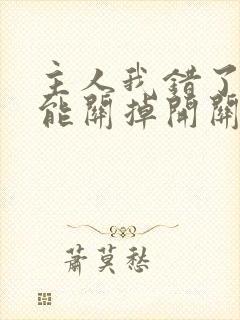 主人我错了
能關掉開關
蕭莫愁